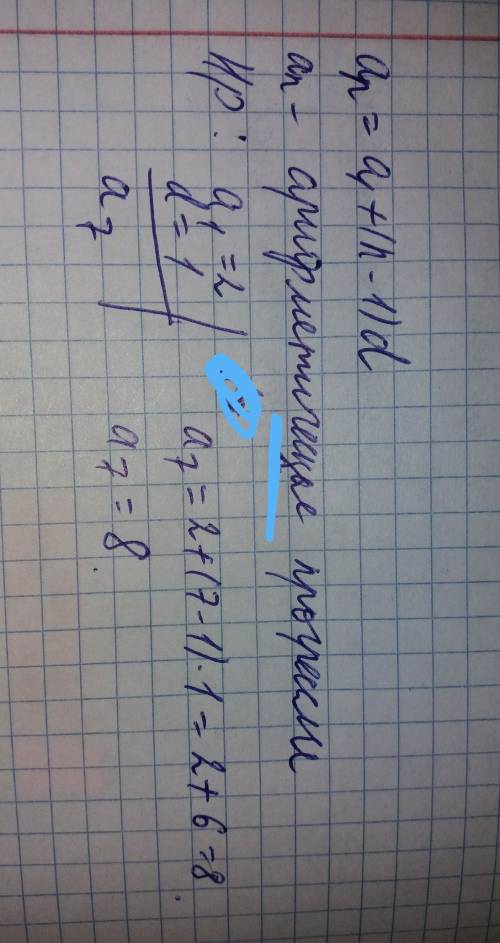 aₙ = a₁ + (n - 1)d
aₙ - арифметическые прогрессии
Нр: a₁ = 2
d = 1
a₇
a₇ = 2 + (7 - 1) · 1 = 2 + 6 = 8.
a₇ = 8.